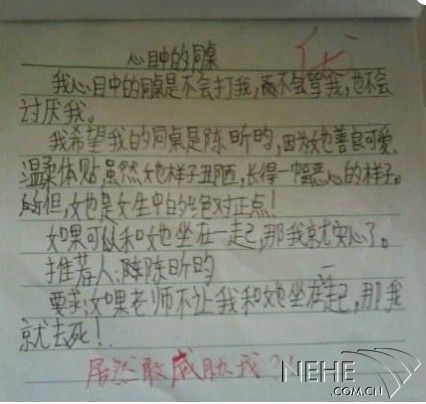 心目中的同桌
优
我心目中的同桌是不会打我,不会骂我,也不会
讨厌我。
我希望我的同桌是陈昕昀,因为她善良可爱、
温柔体贴,虽然她样子丑陋,长得一幅恶心的样子。
但,她也是女生中的绝对正点!
如果可以和她坐在一起,那我就安心了。
推荐人:陈昕昀
要求:如果老师不让我和她坐在一起,那我
就去死!
居然敢威胁我?!
NEHE
.COM.CN